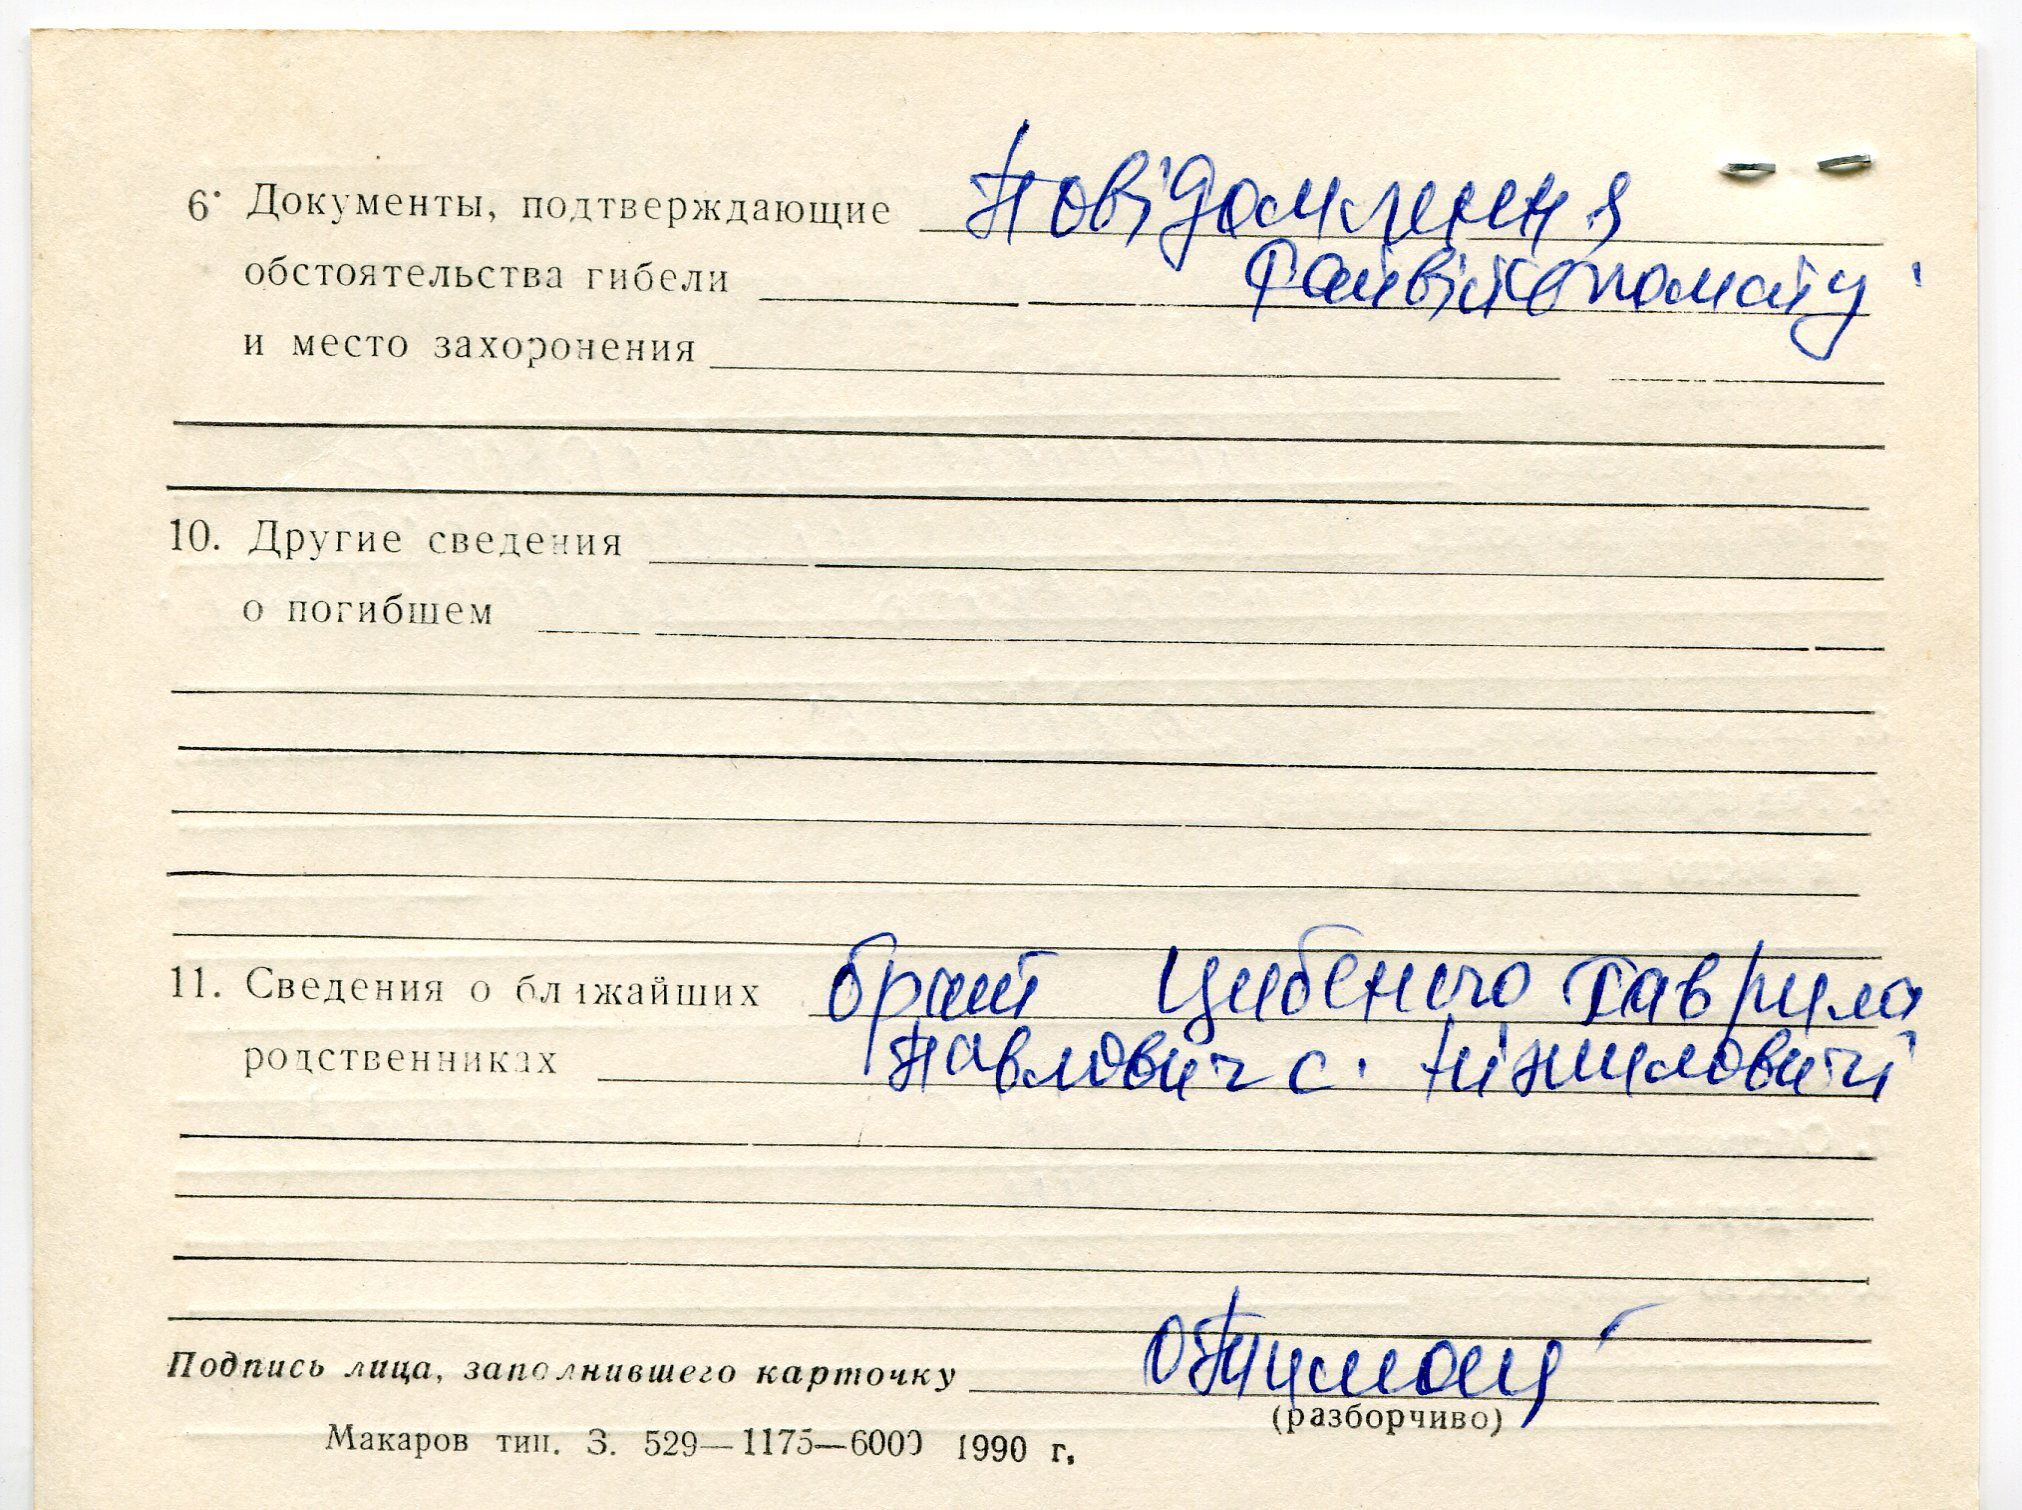 6. Документы, подтверждающие Повідомлення
обстоятельства гибели Райвійськомату
и место захоронения
10. Другие сведения
о погибшем
11. Сведения о ближайших брат Цибенко Гаврило
родственниках Павлович с. Ніжиловичі
Подпись лица, заполнившего карточку
(разборчиво)
Макаров тип. З. 529—1175—6000 1990 г.